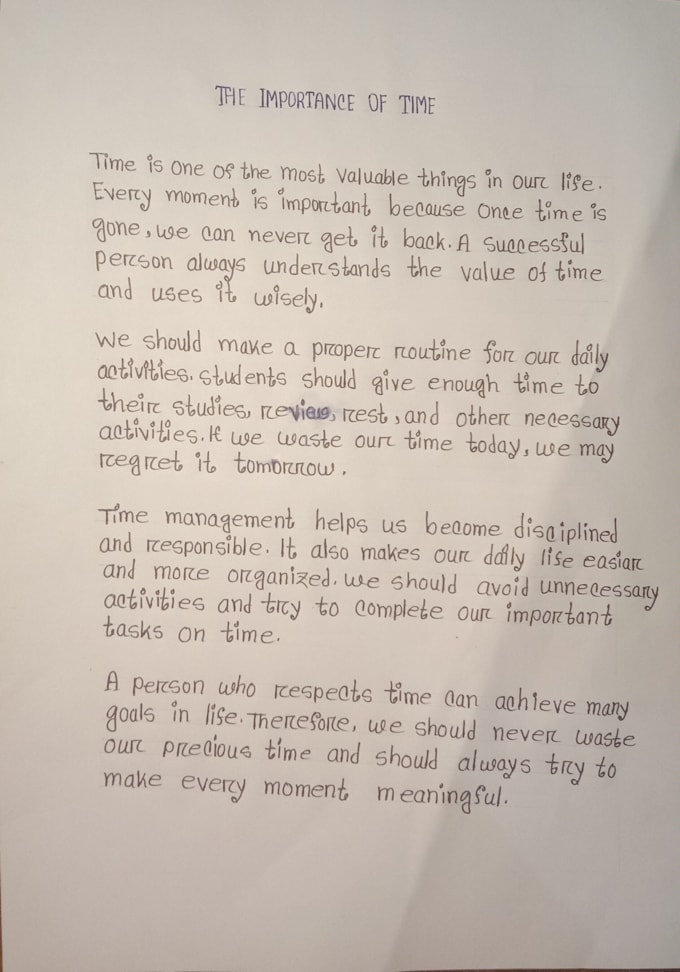 THE IMPORTANCE OF TIME
Time is one of the most valuable things in our life.
Every moment is important because once time is
gone, we can never get it back. A successful
person always understands the value of time
and uses it wisely.
We should make a proper routine for our daily
activities. students should give enough time to
their studies, review, rest, and other necessary
activities. If we waste our time today, we may
regret it tomorrow.
Time management helps us become disciplined
and responsible. It also makes our daily life easiar
and more organized. we should avoid unnecessary
activities and try to complete our important
tasks on time.
A person who respects time can achieve many
goals in life. Therefore, we should never waste
our precious time and should always try to
make every moment meaningful.